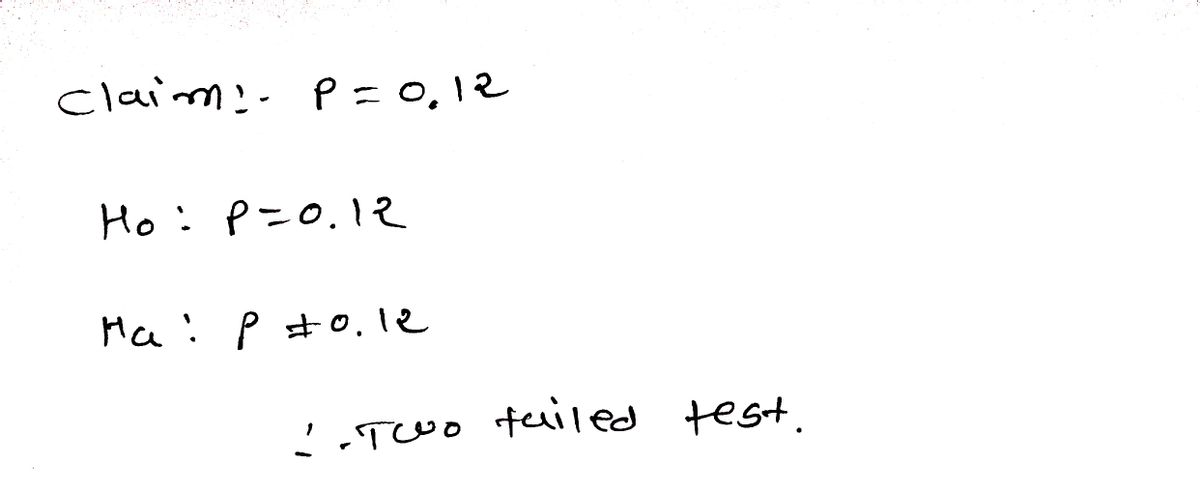 Claim:- P = 0.12
Ho : P = 0.12
Ha : P ≠ 0.12
∴ Two tailed test.